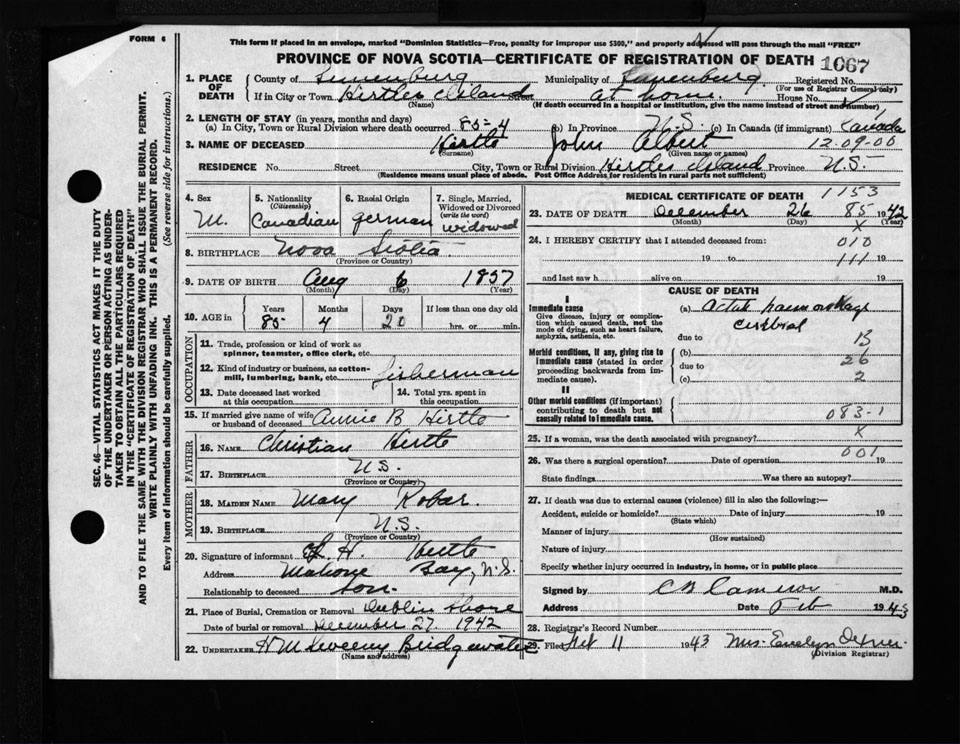 FORM 6
This form if placed in an envelope, marked "Dominion Statistics—Free, penalty for improper use $300," and properly addressed will pass through the mail "FREE"
PROVINCE OF NOVA SCOTIA—CERTIFICATE OF REGISTRATION OF DEATH 1067
1. PLACE OF DEATH County of Lunenburg Municipality of Lunenburg Registered No.
(For use of Registrar General only)
If in City or Town Hirtles Island Street at home House No.
(Name) (If death occurred in a hospital or institution, give the name instead of street and number)
2. LENGTH OF STAY (in years, months and days)
(a) In City, Town or Rural Division where death occurred 85-4 (b) In Province N.S. (c) In Canada (if immigrant) Canada
3. NAME OF DECEASED Hirtle John Albert 12-09-00
(Surname) (Given name or names)
RESIDENCE No. Street City, Town or Rural Division Hirtles Island Province N.S.
(Residence means usual place of abode. Post Office Address for residents in rural parts not sufficient)
4. Sex M.
5. Nationality (Citizenship) Canadian
6. Racial Origin german
7. Single, Married, Widowed or Divorced (write the word) widowed
8. BIRTHPLACE Nova Scotia
(Province or Country)
9. DATE OF BIRTH Aug 6 1857
(Month) (Day) (Year)
10. AGE in Years 85 Months 4 Days 20 If less than one day old
hrs. or min.
OCCUPATION
11. Trade, profession or kind of work as spinner, teamster, office clerk, etc.
12. Kind of industry or business, as cotton-mill, lumbering, bank, etc. fisherman
13. Date deceased last worked at this occupation
14. Total yrs. spent in this occupation
15. If married give name of wife or husband of deceased Annie B Hirtle
FATHER
16. Name Christian Hirtle
17. Birthplace N.S.
(Province or Country)
MOTHER
18. Maiden Name Mary Robar
19. Birthplace N.S.
(Province or Country)
20. Signature of informant H. Hirtle
Address Mahone Bay, N.S.
Relationship to deceased son.
21. Place of Burial, Cremation or Removal Dublin Shore
Date of burial or removal December 27, 1942
22. Undertaker H M Sweeny Bridgewater
(Name and address)
MEDICAL CERTIFICATE OF DEATH 1153
23. DATE OF DEATH December 26 85 1942
(Month) (Day) (Year)
X
24. I HEREBY CERTIFY that I attended deceased from: 010
19 to 111 19
and last saw h alive on 19
CAUSE OF DEATH
I
Immediate cause
Give disease, injury or complication which caused death, not the mode of dying, such as heart failure, asphyxia, asthenia, etc.
(a) Actute haemorrhage
cerebral
due to 13
Morbid conditions, if any, giving rise to immediate cause (stated in order proceeding backwards from immediate cause).
(b) 26
due to
(c) 2
II
Other morbid conditions (if important) contributing to death but not causally related to immediate cause.
083-1
25. If a woman, was the death associated with pregnancy? X
001
26. Was there a surgical operation? Date of operation 19
State findings Was there an autopsy?
27. If death was due to external causes (violence) fill in also the following:—
Accident, suicide or homicide? Date of injury 19
(State which)
Manner of injury
(How sustained)
Nature of injury
Specify whether injury occurred in industry, in home, or in public place
Signed by C B Cameron M.D.
Address Date Feb 1943
28. Registrar's Record Number
29. Filed Feb 11 1943 Mrs. Evelyn
(Division Registrar)
SEC. 46—VITAL STATISTICS ACT MAKES IT THE DUTY
OF THE UNDERTAKER OR PERSON ACTING AS UNDERTAKER TO OBTAIN ALL THE PARTICULARS REQUIRED
IN THE "CERTIFICATE OF REGISTRATION OF DEATH"
AND TO FILE THE SAME WITH THE DIVISION REGISTRAR WHO SHALL ISSUE THE BURIAL PERMIT.
WRITE PLAINLY WITH UNFADING INK. THIS IS A PERMANENT RECORD.
Every item of information should be carefully supplied. (See reverse side for instructions.)